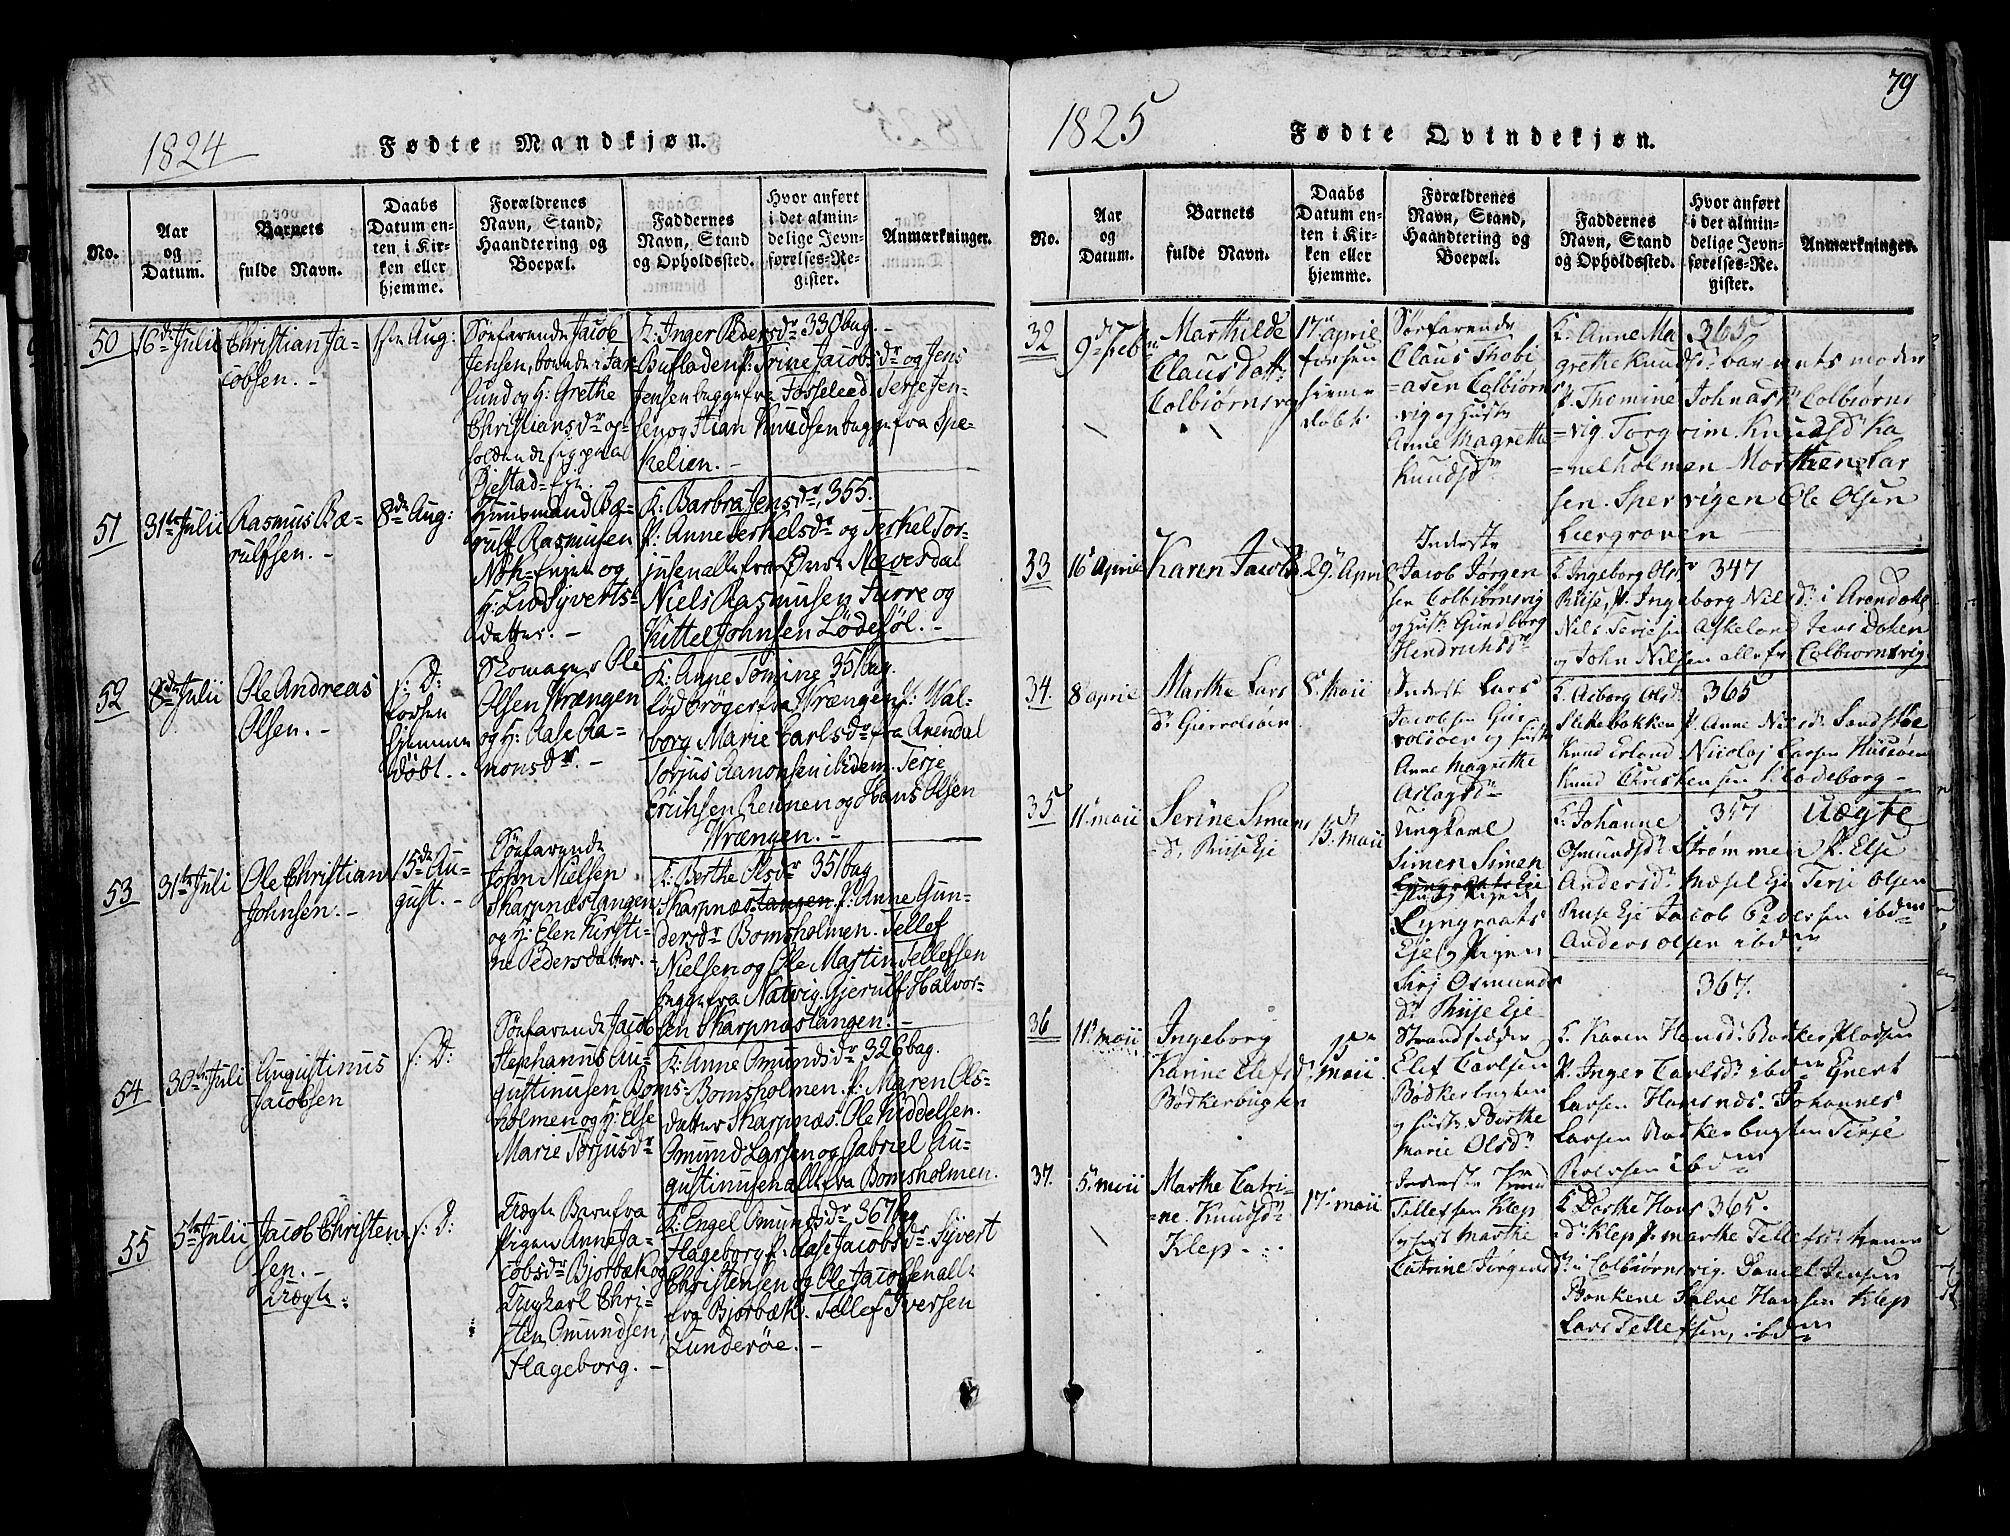 1824
Fødte Mandkjøn.
No.
Aar
og
Datum.
Barnets
fulde Navn.
Daabs
Datum en-
ten i Kir-
ken eller
hjemme.
Forældrenes
Navn, Stand,
Haandtering og
Boepæl.
Faddernes
Navn, Stand
og Opholdssted.
Hvor anført
i det almin-
delige Jevn-
førelses-Re-
gister.
Anmærkninger.
50
16de Julii
Christian Ja-
cobsen. -
Aug:
Søefarende Jacob
Jensen, boende i
sund og H: Grethe
Christiansdr og
op-
holdende sig paa
Bjestad
K: Inger Pedersdr 330 bag. -
Jacobsdr og Jens
Jensen begge fra Fosseleed. Terje Jen-
sen og Stian Knudsen begge fra Spe-
kelien. -
51
31te Julii
Rasmus Bæ-
rulfsen. -
8de Aug:
Huusmand Bæ-
rulf Rasmusen
og
H: Liv Syverts-
datter. -
K: Barbra Jensdr, 355.
P: Anne Terkelsdr og Terkel Tor-
jusen alle fra Øvre Nævesdal
Niels Rasmusen Furre og
Kittel Johnsen Lödesöl. -
52
8de Julii
Ole Andreas
Olsen. -
s: D:
forhen
hjemme
døbt. -
Skomager Ole
Olsen Wrængen
og H: Aase Aa-
nonsdr. -
K: Anne Tomine 351 bag.
fra Wrængen P: Wal-
borg Marie Carlsdr fra Arendal
Torjus Aanonsen ibidem. Terje
Erichsen Rennen og Hans Olsen
Wrængen. -
53
31te Juli
Ole Christian
Johnsen. -
15de Au-
gust. -
Søefarende
John Nielsen
Skarpnæstangen
og H: Elen Kirsti-
ne Pedersdatter. -
K: Berthe Olsdr 351 bag
Skarpnæstangen P: Anne Gun-
dersdr Bomsholmen. Tellef
Nielsen og Ole Martin Tellefsen
begge fra Natvig. Gjerulf Halvor-
sen Skarpnæstangen. -
54
30te Juli
Augustinus
Jacobsen
s: D:
Søefarende Jacob
Stephanus Au-
gustinusen Boms-
holmen og H: Else
Marie Torjusdr
K: Anne Omundsdr 326 bag.
Bomsholmen. P: Maren Ols-
datter Skarpnæs. Ole Kiddelsen.
Omund Larsen og Gabriel Au-
gustinusen alle fra Bomsholmen.
55
5te Julii
Jacob Christen-
sen. -
Uægte
s: D:
Uægte Barn fra
Pigen Anne Ja-
cobsdr Bjorbæk og
Ungkarl Chri-
sten Omundsen,
Flageborg. -
K: Engel Omundsdr 367 bag
Flageborg P: Aase Jacobsdr. Syvert
Christensen og Ole Jacobsen alle
fra Bjorbæk. Tellef Iversen
Lunderöe. -
1825
Fødte Qvindekjøn.
79
No.
Aar
og
Datum.
Barnets
fulde Navn.
Daabs
Datum en-
ten i Kir-
ken eller
hjemme.
Forældrenes
Navn, Stand,
Haandtering og
Boepæl.
Faddernes
Navn, Stand
og Opholdssted.
Hvor anført
i det almin-
delige Jevn-
førelses-Re-
gister.
Anmærkninger.
32
9de Febr
Marthilde
Clausdatr
Colbiørnsvig
17de april
forhen
hiemme
døbt.
Sørfarende
Claus Thobi
asen Colbiørns
vig og Hustr
Anne Magrethe
Knudsdr
K: Anne Ma 365
grethe Knudsdr barnets moder
P. Thomine Johnasdr Colbiørns
vig Torgrim Knudsdr Ka
nelholmen Morthen Lar
sen. Spervigen Ole Olsen
Liergraven
33
16 April
Karen Jacobsd
29 April
Inderste
Jacob Jørgen
sen Colbiørnsvig
og Hustr Gundborg
Hendrichsdr
K Ingeborg Olsdr 347
Riise, P. Ingeborg Nilsdr i Arendahl
Nils Terjesen Askeland Jens Daken
og John Nilsen alle fr Colbiørnsvig
34.
8 aprile
Marthe Lars
dr Gierrolsöen
8 Maii
Inderst Lars
Jacobsen Gier
rolsöer og Hustr
Anne Magrethe
Aslagsdr
K Asborg Olsdr 365
Slakebakken P. Anne Nilsdr Sandstøe
Knud Erland Nicolaj Larsen Huusöen
Knud Christensen Klodeborg -
35
11 maii
Serine Simens
dr Riise Eje
15. maii
Ungkarl
Simen Simen
Lyngraats
Eje og Pigen
Sirj Osmunds
dr Riise Eje
K: Johanne 347 Uægte
Osmundsdr Strømmen P. Else
Andersdr. Mæsel Eje Terje Olsen
Riise Eje Jacob Pedersen ibdm
Anders Olsen ibdm
36
11 maii
Ingeborg
Karine Elefsdr
Bødkerbugten
15
maii
Strandsidder
Elef Carlsen
Bødkerbugten
og Hustr Berthe
Marie Olsdr
367.
K. Karen Hansdr
P. Inger Carlsdr ibdm Evert
Larsen Johannes
Larsen Bødkerbugten Terje
ibdm
37.
5 maii
Marthe Catri-
ne. Knudsdr
Klep -
17 maii
Inderste Knud
Tellefsen Klep
og Hust Marthe
Catrine Jørgensd
K Dorthe Hans 365.
dr Klep P. Marthe Tellefsdr
i Colbiørnsvig. Daniel Jensen
Salve Hansen Klep
Lars Tellefsen, ibdm